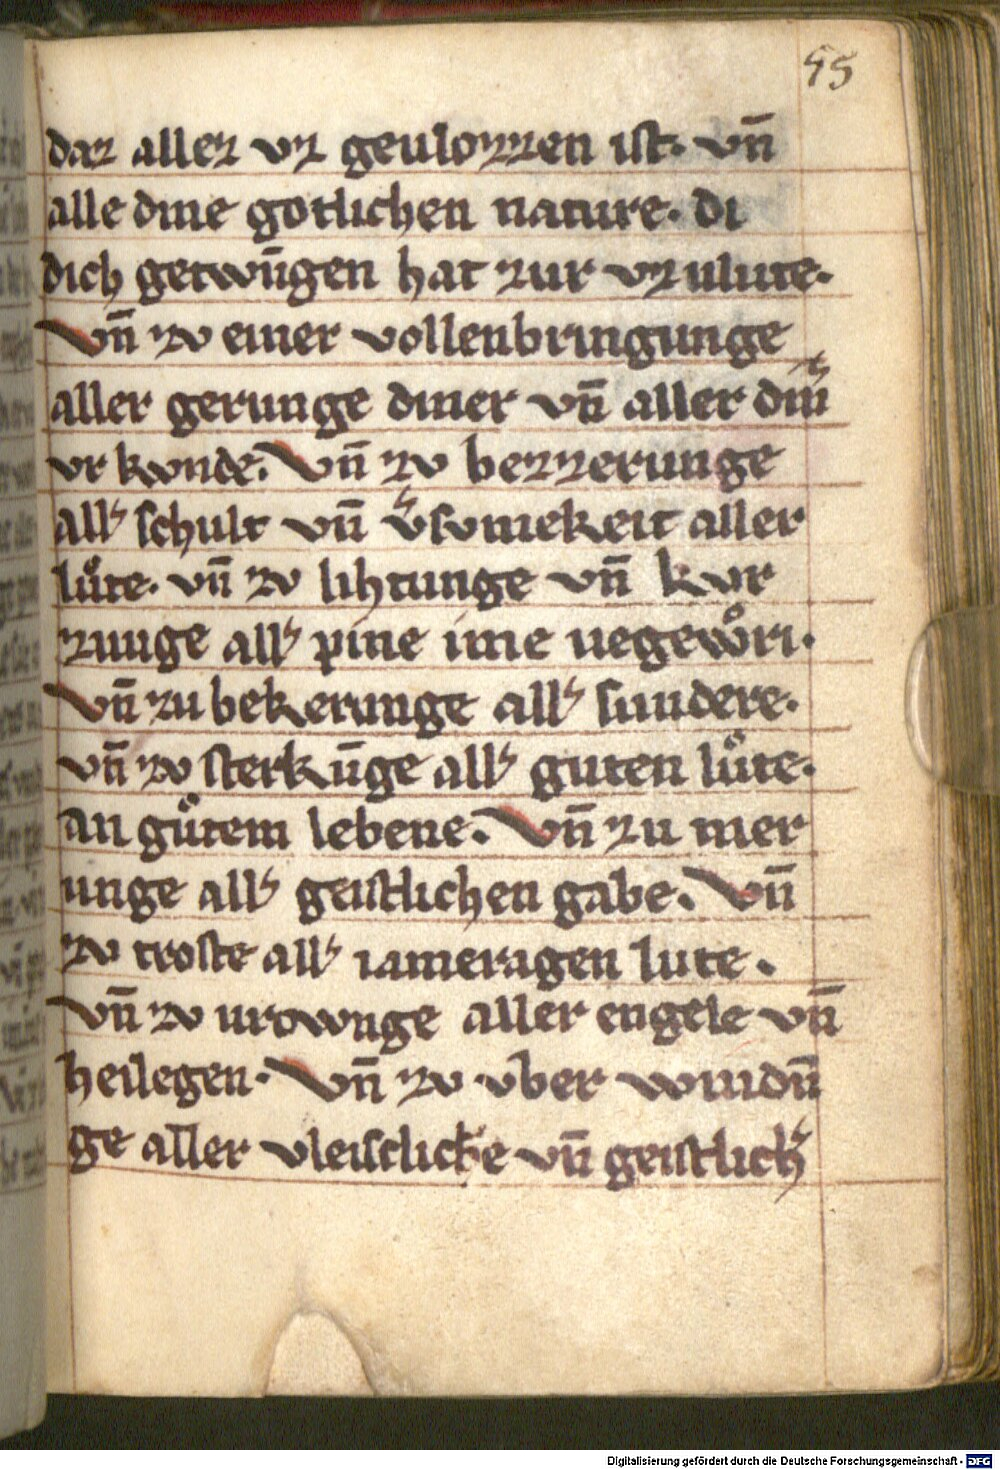 55
daz allez vz geulozzen ist. vn̄
alle dine gotlichen nature. di
dich getwūgen hat zur vz ulute.
Vn̄ zv einer vollenbringunge
aller gerunge diner vn̄ aller din̄
vrkvnde. Vn̄ zv bezzerunge
all' schult vn̄ v'svmekeit aller
lůte. vn̄ zv lihtunge vn̄ kvr
zunge all' pine ime uegewůri.
Vn̄ zu bekerunge all' sundere.
vn̄ zv sterkūge all' guten lůte.
an gůtem lebene. Vn̄ zu mer
unge all' geistlichen gabe. Vn̄
zv troste all' iameragen lute.
Vn̄ zv urowvnge aller engele vn̄
heilegen. Vn̄ zv vber windū
ge aller vleisclicħe vn̄ geistlich'
Digitalisierung gefördert durch die Deutsche Forschungsgemeinschaft - DFG